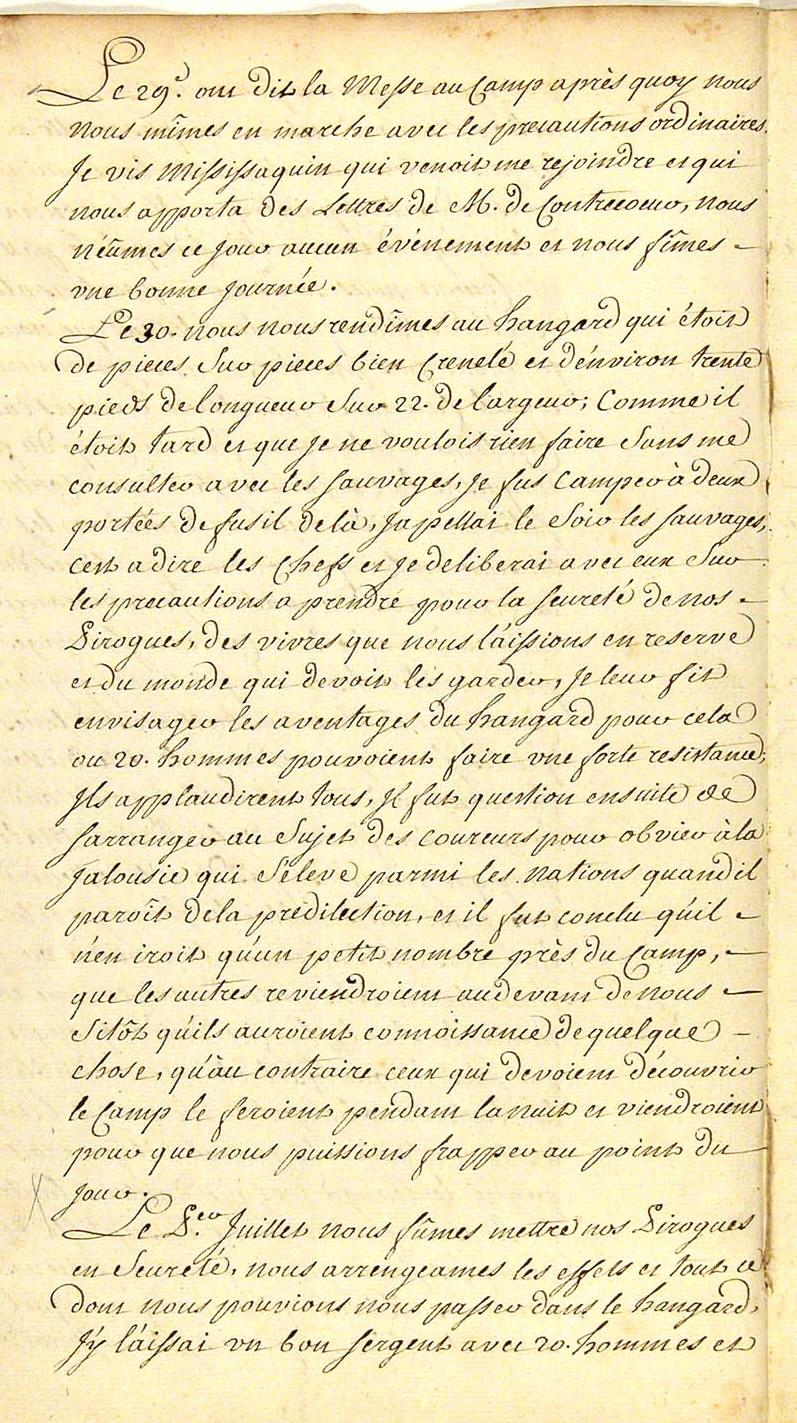 Le 29e. on dit la Messe au Camp après quoy nous
nous mîmes en marche avec les precautions ordinaires.
Je vis Missisaquin qui venoit me rejoindre et qui
nous apporta des Lettres de M. de Contrecoeur, nous
n'eûmes ce jour aucun événement et nous fîmes -
une bonne journée.
Le 30. nous nous rendîmes au hangard qui étoit
de pieces sur pieces bien Crenelé et d'énviron trente
pieds de longueur sur 22. de largeur; Comme il
étoit tard et que je ne voulois rien faire sans me
consulter avec les sauvages, je fus Camper à deux
portées de fusil de là, J'apellai le Soir les sauvages,
c'est a dire les Chefs et je deliberai avec eux sur
les precautions a prendre pour la seureté de nos -
Pirogues, des vivres que nous láissions en reserve
et du monde qui devoit les garder, je leur fit
envisager les aventages du hangard pour cela
ou 20. hommes pouvoient faire une forte resistance;
Ils applaudirent tous, Il fut question ensuite de
s'arranger au Sujet des coureurs pour obvier à la
jalousie qui s'éleve parmi les nations quand il
paroît de la predilection, et il fut conclu qu'il -
n'en iroit qu'un petit nombre près du Camp, -
que les autres reviendroient au devant de nous -
Sitôt qu'ils auroient connoissance de quelque -
chose, qu'àu contraire ceux qui devoient découvrir
le Camp le feroient pendant la nuit et viendroient
pour que nous puissions frapper au point du
jour.
Le P.er Juillet nous fûmes mettre nos Pirogues
en Seureté, nous arrengeames les effets et tout ce
dont nous pouvions nous passer dans le hangard,
J'y láissai un bon sergent avec 20. hommes et